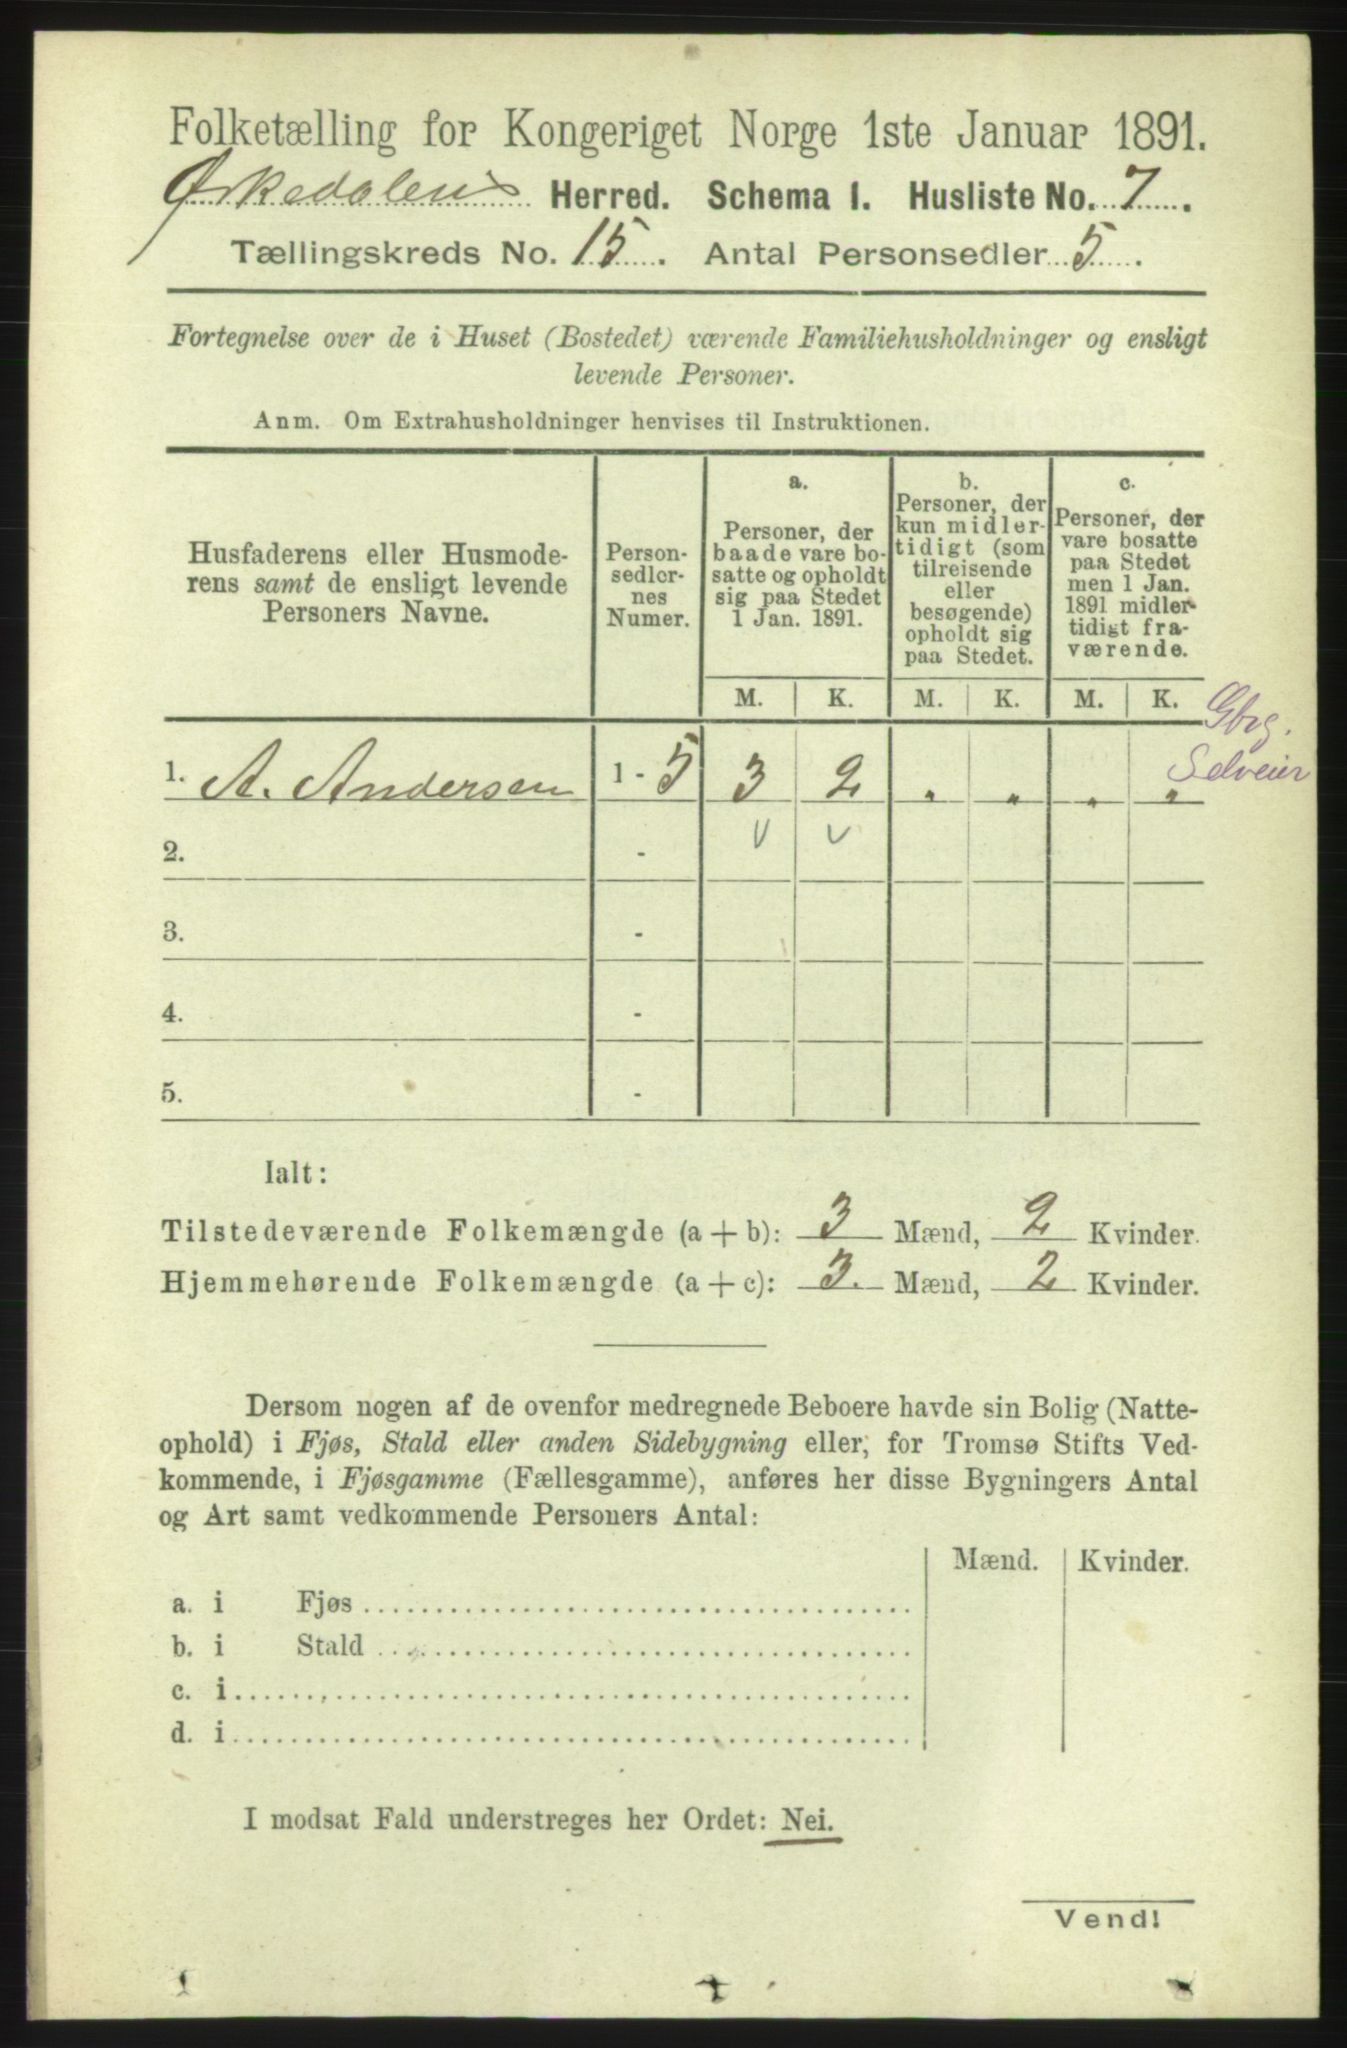 Folketælling for Kongeriget Norge 1ste Januar 1891.
Ørkedalens Herred. Schema I. Husliste No. 7.
Tællingskreds No. 15. Antal Personsedler 5.
Fortegnelse over de i Huset (Bostedet) værende Familiehusholdninger og ensligt
levende Personer.
Anm. Om Extrahusholdninger henvises til Instruktionen.
Husfaderens eller Husmode-
rens samt de ensligt levende
Personers Navne.
Person-
sedler-
nes
Numer.
a.
Personer, der
baade vare bo-
satte og opholdt
sig paa Stedet
1 Jan. 1891.
b.
Personer, der
kun midler-
tidigt (som
tilreisende
eller
besøgende)
opholdt sig
paa Stedet.
c.
Personer, der
vare bosatte
paa Stedet
men 1 Jan.
1891 midler-
tidigt fra-
værende.
M. K. M. K. M. K.
Gbrg.
Selveier
1. A. Andersen 1 - 5 3 2 . . . .
2. -
3. -
4. -
5. -
Ialt:
Tilstedeværende Folkemængde (a + b): 3 Mænd, 2 Kvinder.
Hjemmehørende Folkemængde (a + c): 3. Mænd, 2 Kvinder.
Dersom nogen af de ovenfor medregnede Beboere havde sin Bolig (Natte-
ophold) i Fjøs, Stald eller anden Sidebygning eller, for Tromsø Stifts Ved-
kommende, i Fjøsgamme (Fællesgamme), anføres her disse Bygningers Antal
og Art samt vedkommende Personers Antal:
Mænd. Kvinder.
a. i Fjøs
b. i Stald
c. i
d. i
I modsat Fald understreges her Ordet: Nei.
Vend!